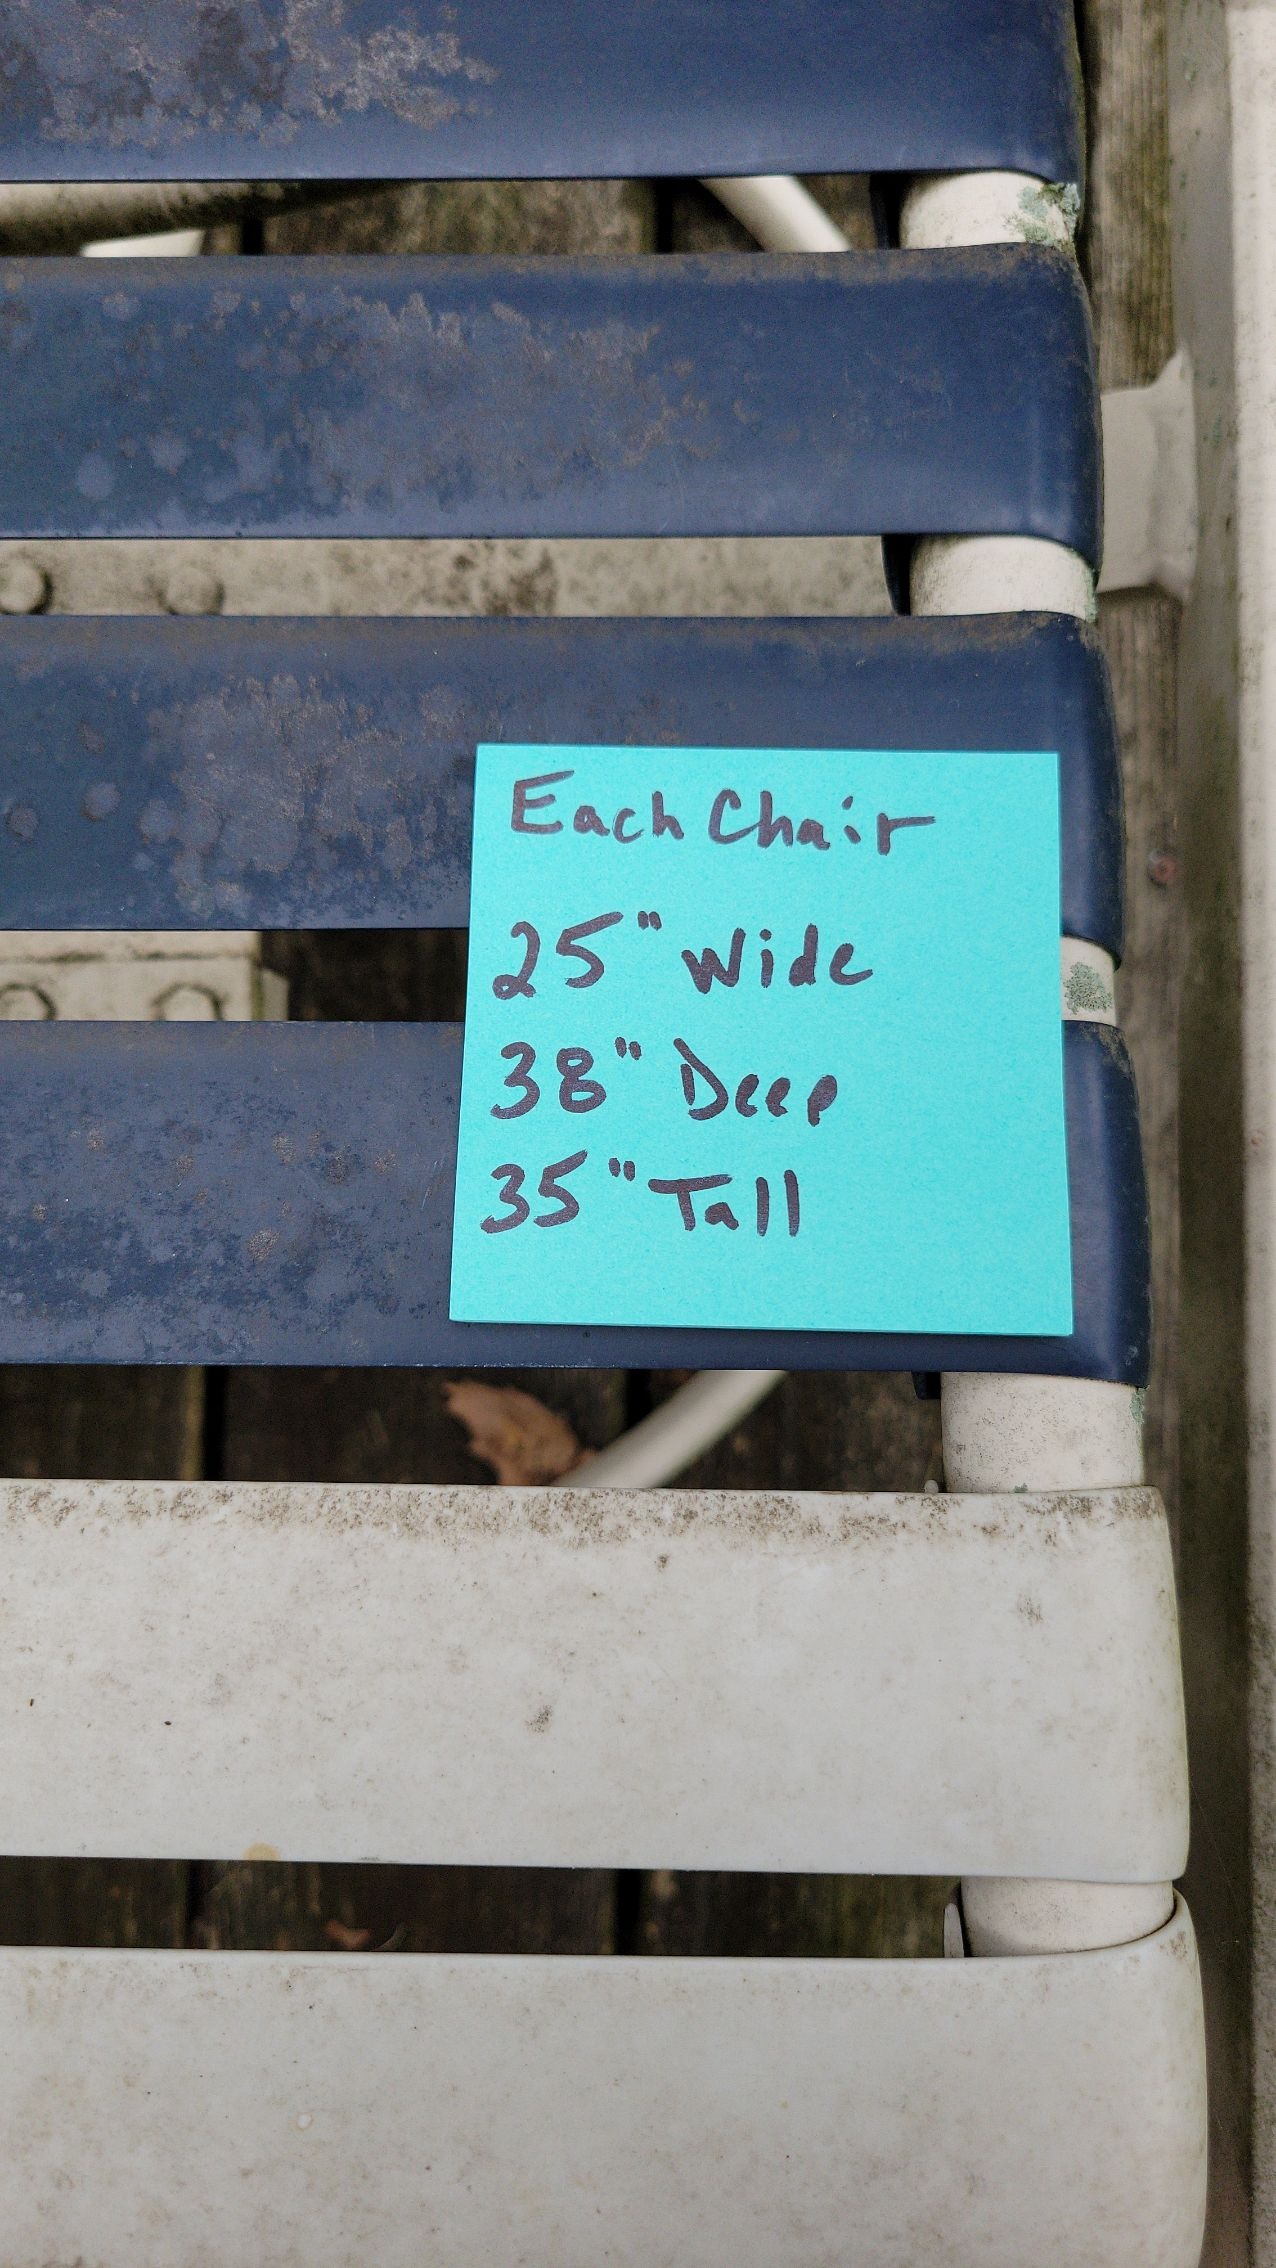 Each Chair
25" Wide
38" Deep
35" Tall